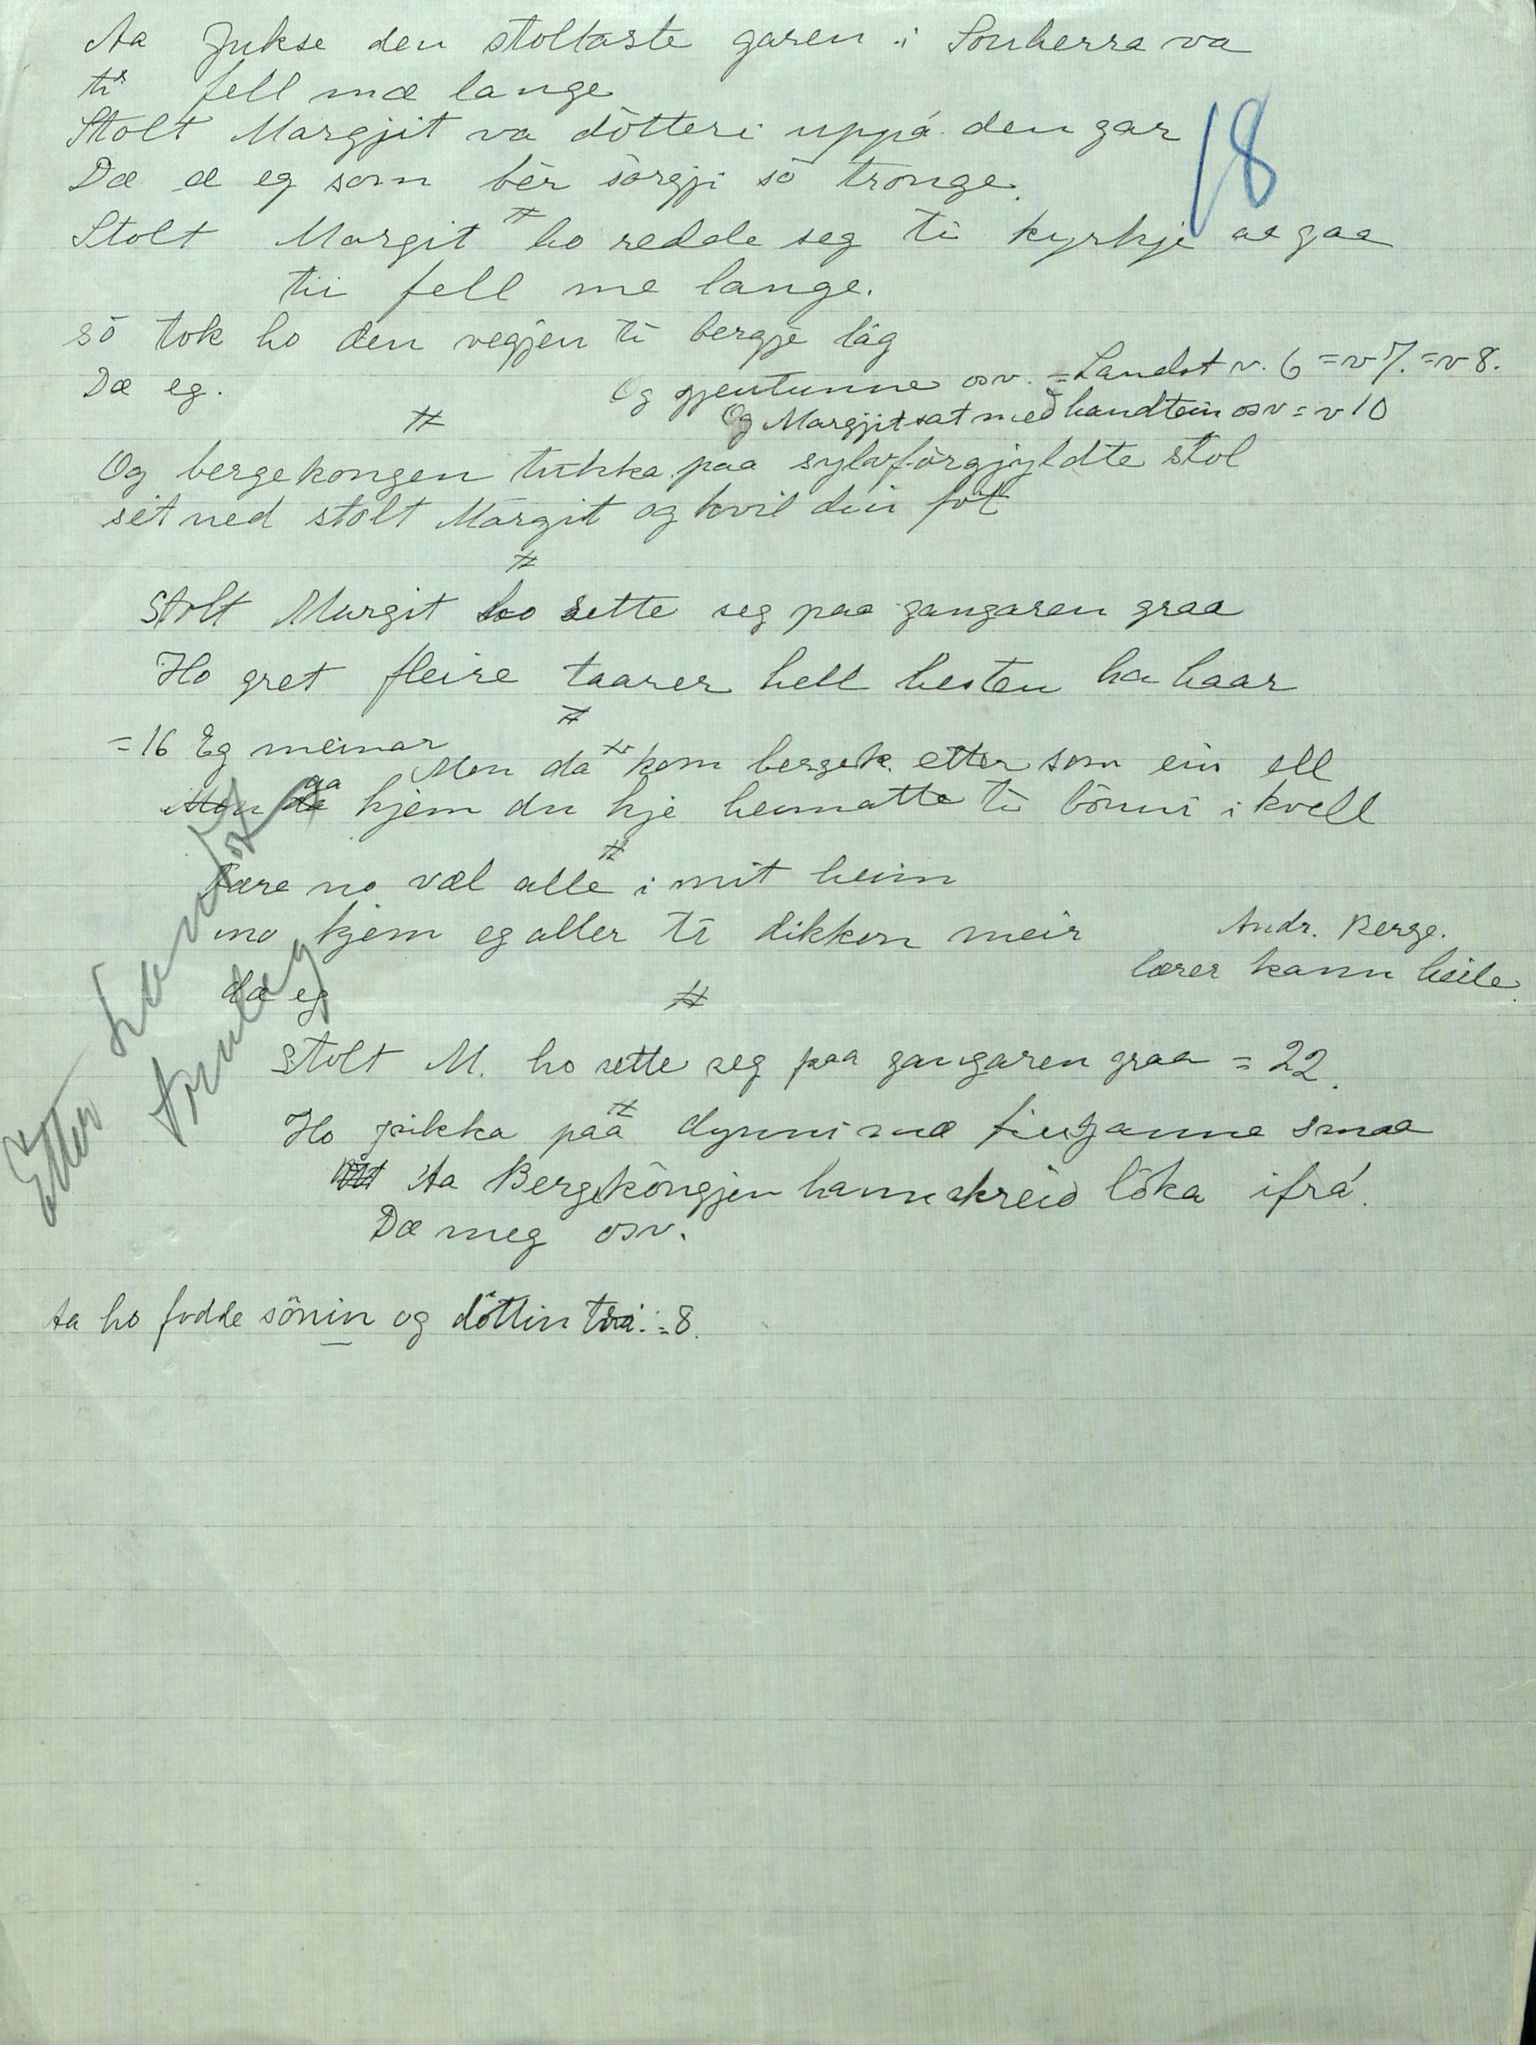 Aa Jukse den stoltaste garen i Souherra va
18
ti fell mæ lange
Stolt Margjit va dötteri uppá den gar
Dæ æ eg som bêr sörgji sö tronge.
Stolt Margit ho redde seg ti kyrkje aa gaa
tii fell me lange.
sö tok ho den vegjen ti bergje låg
Dæ eg.
Og gjentunne osv. = Landst v. 6 = v 7. = v 8.
Og Margjit sat med handtein osv = v 10
#
Og bergekongen tukka paa sylvförgjyldte stol
set ned stolt Margit og kvil din fot
#
Stolt Margit ho sette seg paa gangaren graa
Ho gret fleire taarer hell hesten ha haar
#
= 16 Eg meinar
Men da kom bergek. etter som ein ell
aa kjem du kje heimatte ti bönni i kvell
#
Fare no væl alle i mit heim
no kjem eg aller ti dikkon meir
Andr. Berge.
lærer kann heile.
dæ eg
#
Stolt M. ho sette seg paa gangaren graa = 22.
#
Ho pikka paa dynni mæ finganne smaa
Aa Bergeköngjen hann skreid löka ifrá.
Dæ meg osv.
Aa ho fodde sönin og döttin trá. = 8.
Etter Landst